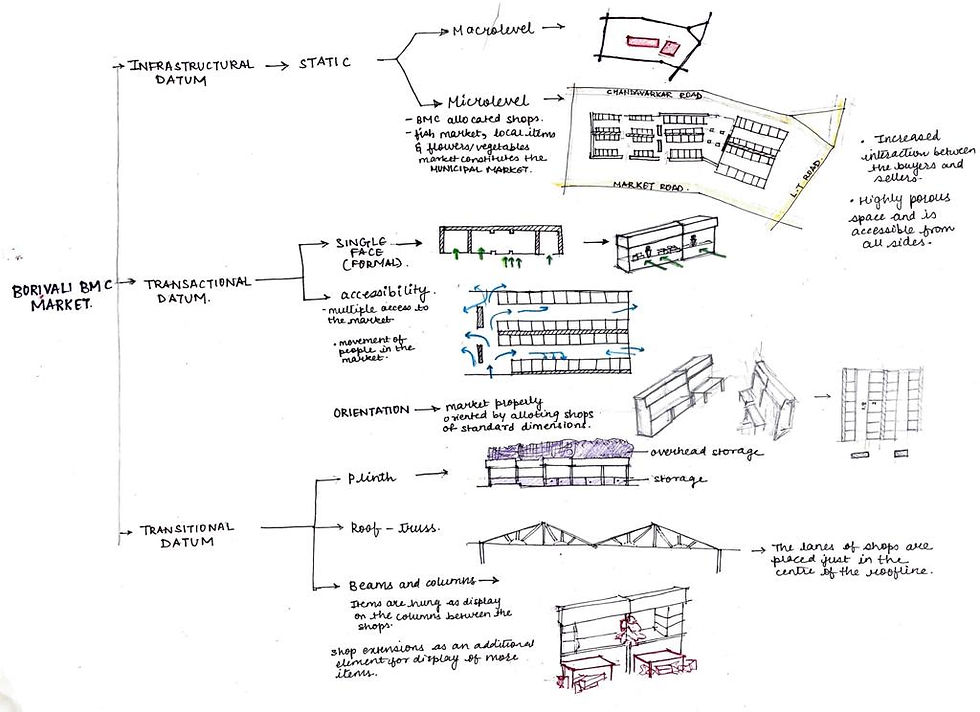 BORIVALI BMC
MARKET.
INFRASTRUCTURAL
DATUM
STATIC
Macrolevel
Microlevel
- BMC allocated shops.
- fish market, local items
& flowers/vegetables
market constitutes the
MUNICIPAL MARKET.
CHANDAVARKAR ROAD.
MARKET ROAD.
L.T ROAD.
• Increased
interaction between
the buyers and
sellers.
• Highly porous
space and is
accessible from
all sides.
TRANSACTIONAL
DATUM.
SINGLE
FACE
(FORMAL).
accessibility.
- multiple access to
the market
• movement of
people in the
market.
ORIENTATION
market properly
oriented by alloting shops
of standard dimensions.
TRANSITIONAL
DATUM
Plinth
overhead storage
storage
Roof - truss.
The lanes of shops are
placed just in the
centre of the roofline.
Beams and columns
Items are hung as display
on the columns between the
shops.
shop extensions as an additional
element for display of more
items.